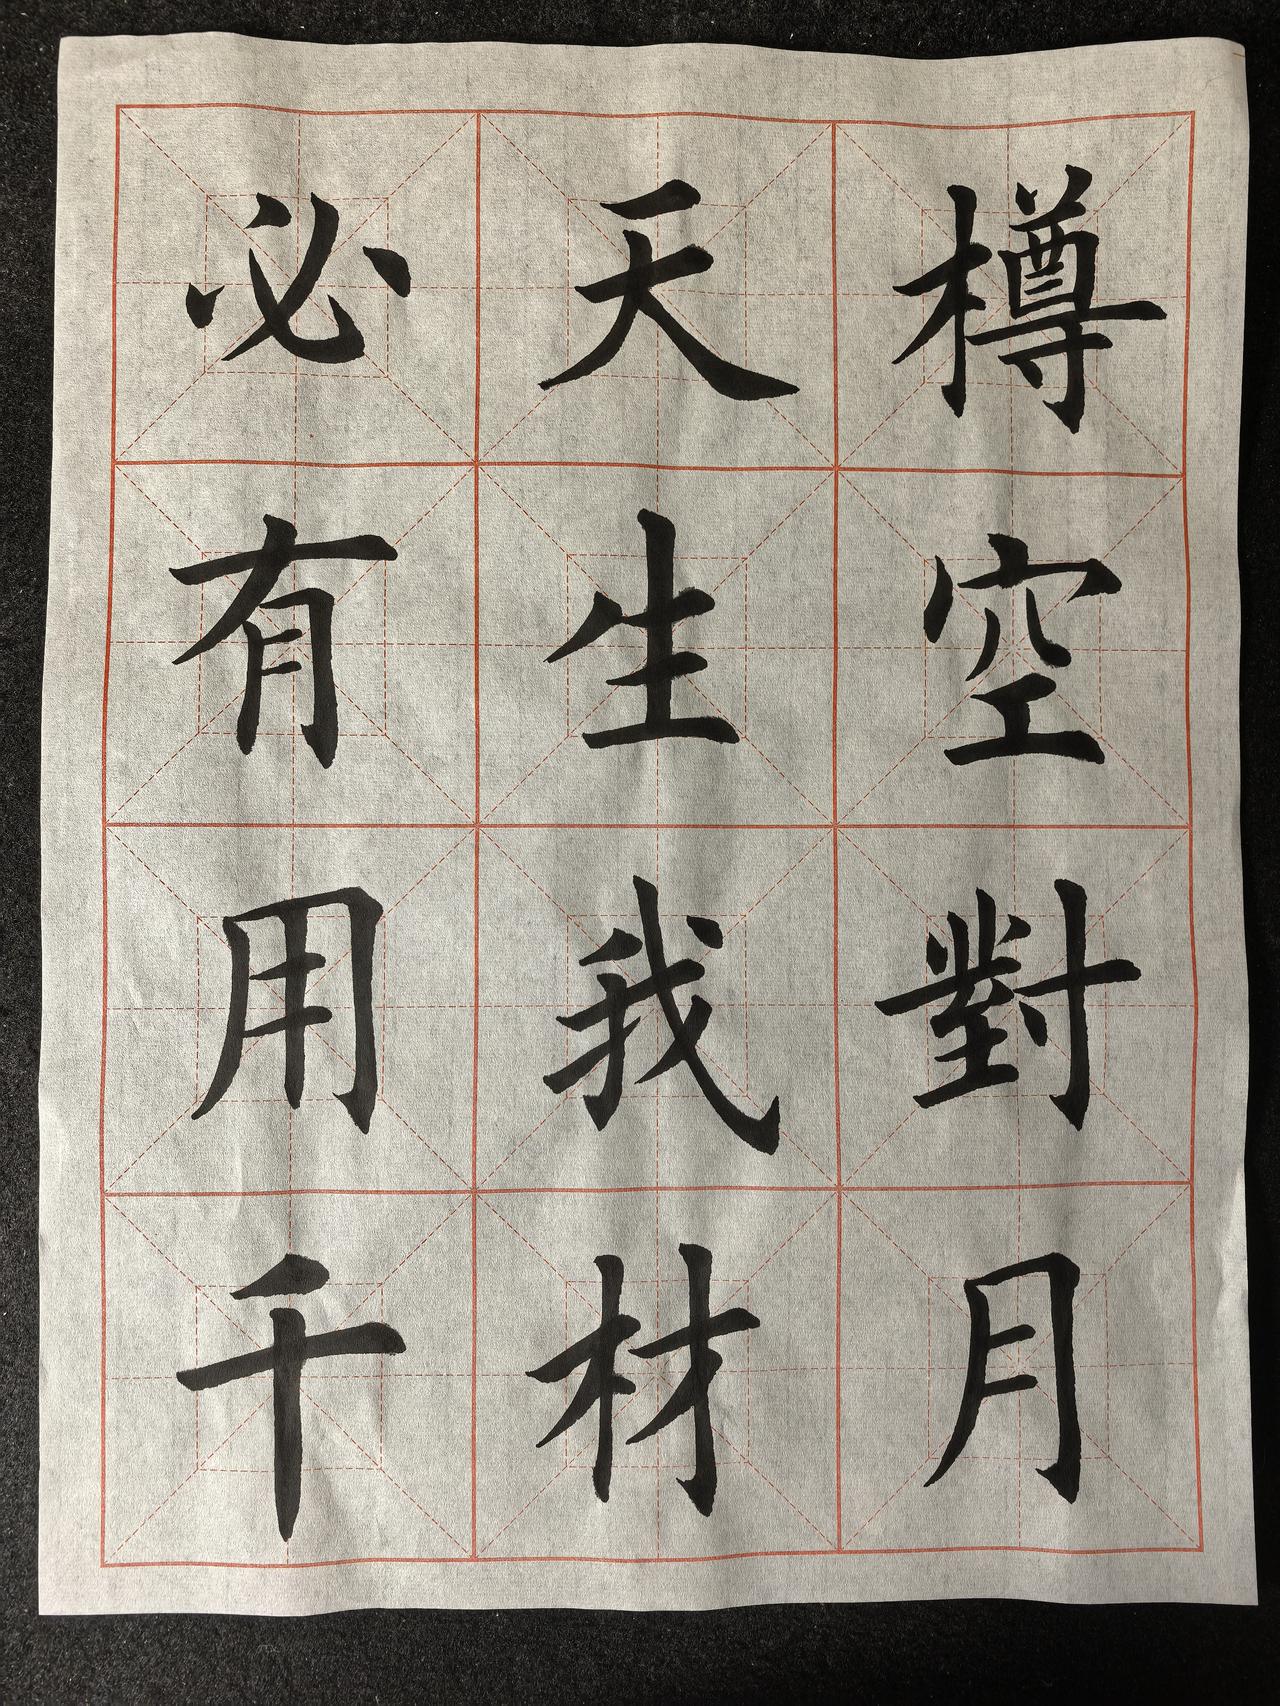 樽空對月
天生我材
必有用千